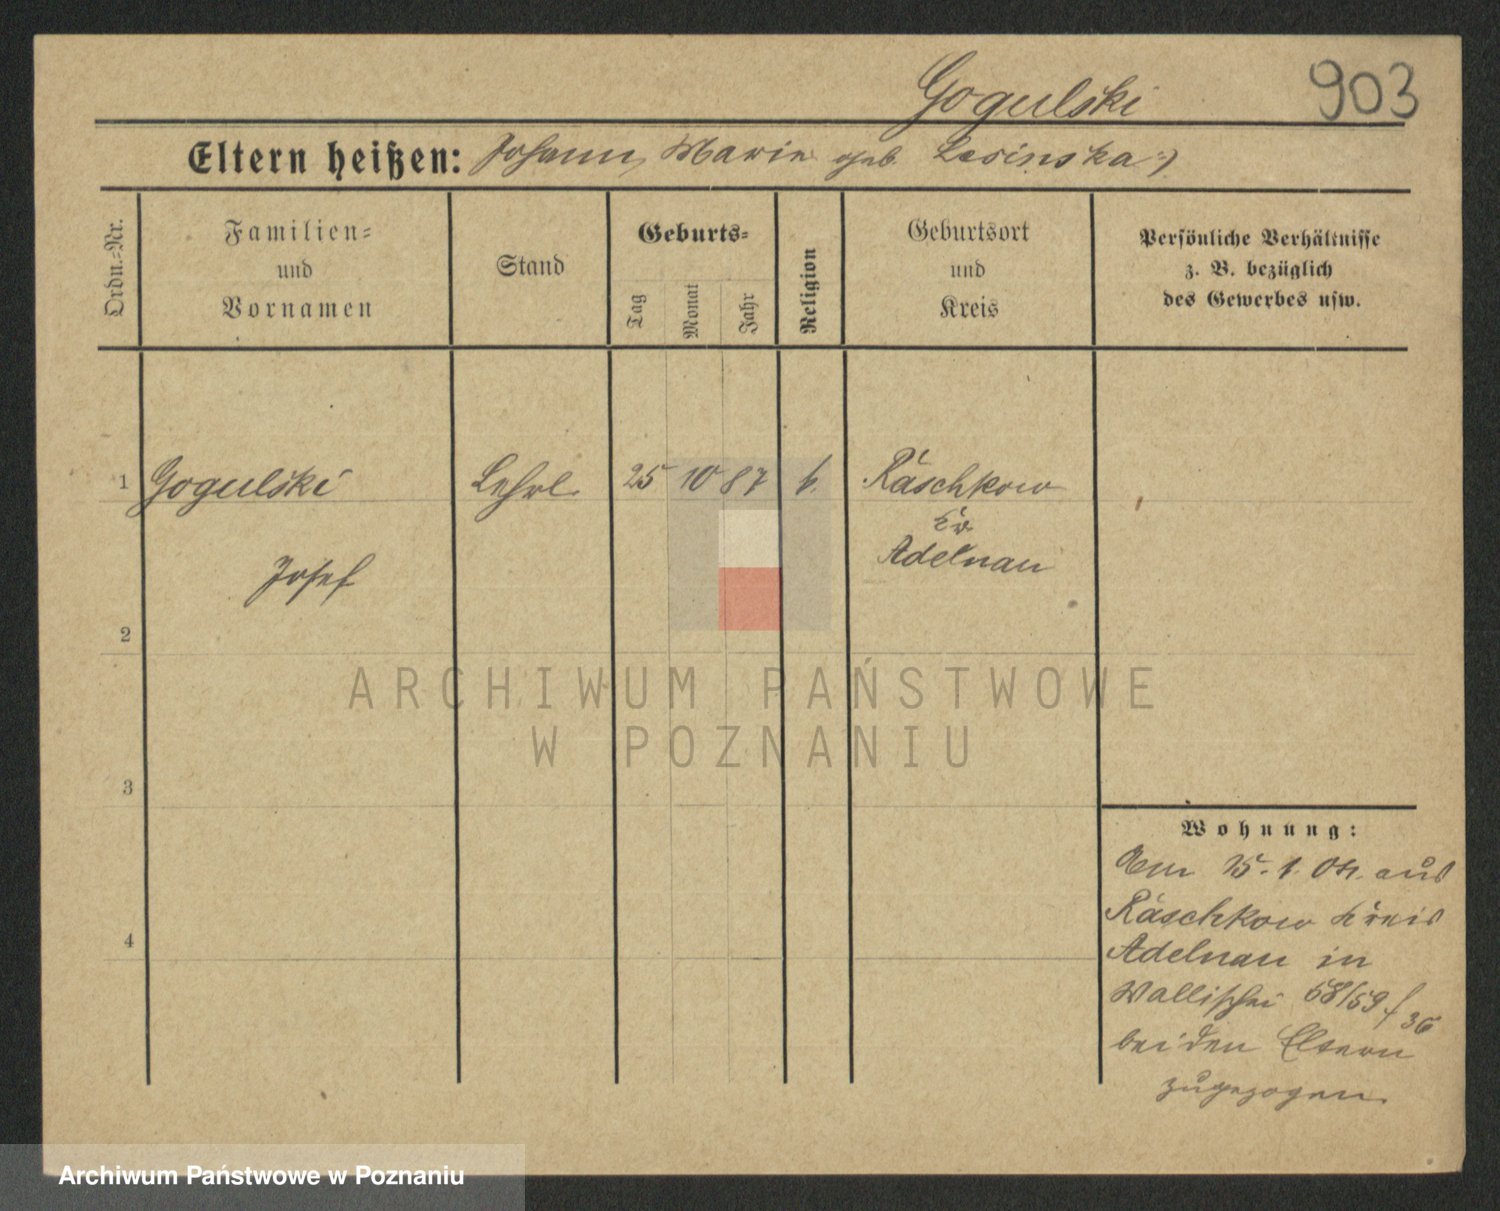 Gogulski 903
Eltern heißen: Johann, Marie geb. Lesinska
Ordn.-Nr.
Familien-
und
Vornamen
Stand
Geburts-
Tag
Monat
Jahr
Religion
Geburtsort
und
Kreis
Persönliche Verhältnisse
z. B. bezüglich
des Gewerbes usw.
1 Gogulski Lehrl. 25 10 87 k. Raschkow
Kr.
Josef Adelnau
2
ARCHIWUM PAŃSTWOWE
W POZNANIU
3
Wohnung:
Am 15. 1. 04. aus
Raschkow Kreis
4
Adelnau in
Wallischei 58/59
bei den Eltern
zugezogen.
Archiwum Państwowe w Poznaniu